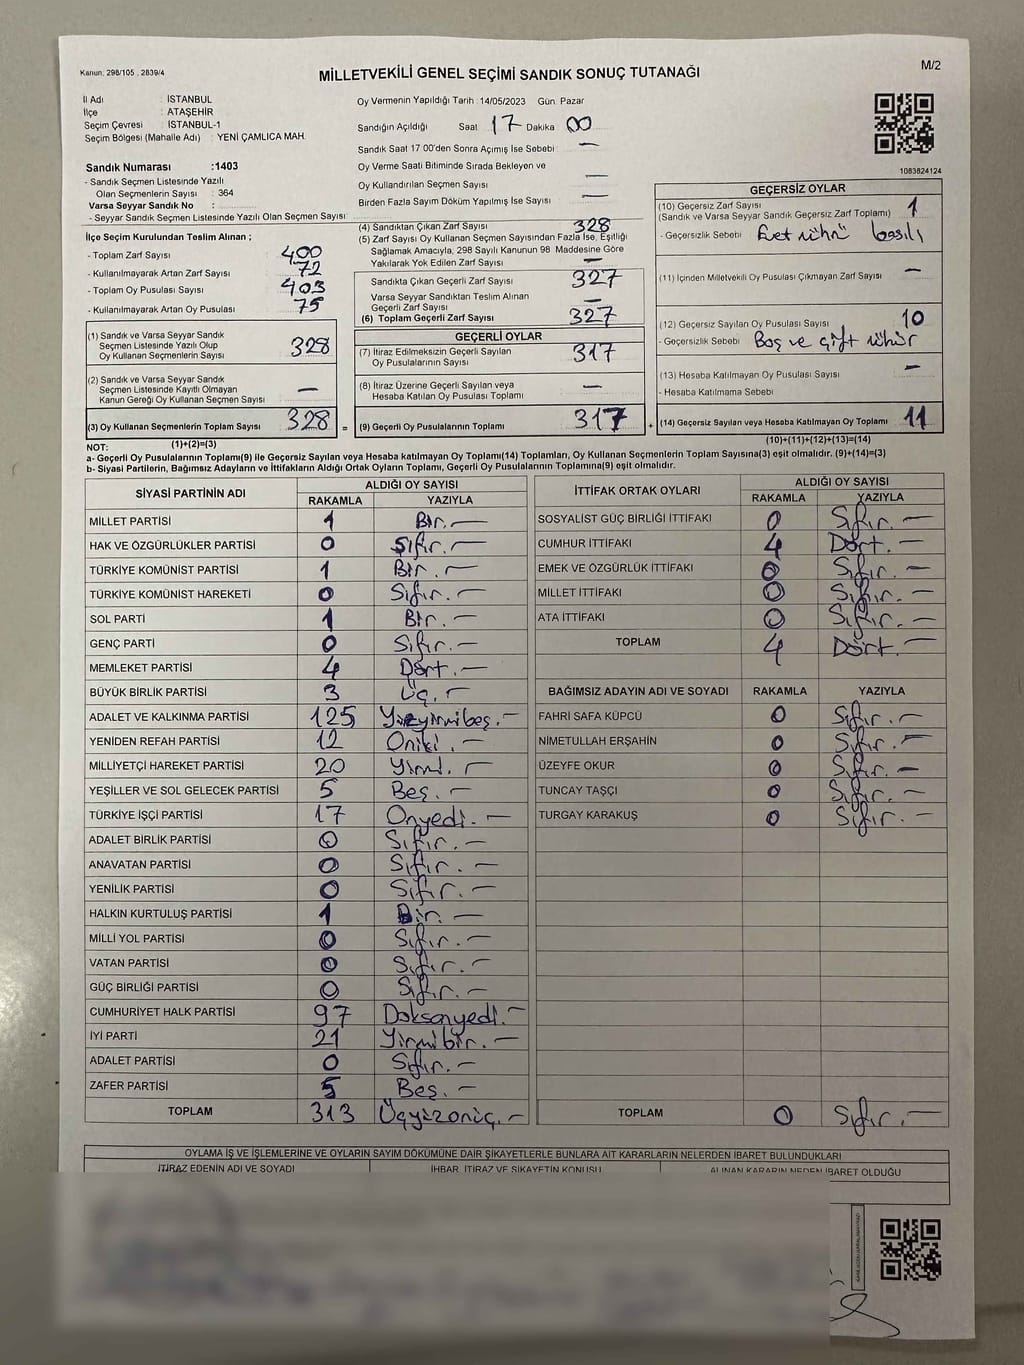 Kanun: 298/105 , 2839/4
MİLLETVEKİLİ GENEL SEÇİMİ SANDIK SONUÇ TUTANAĞI
M/2
İl Adı : İSTANBUL
İlçe : ATAŞEHİR
Seçim Çevresi : İSTANBUL-1
Seçim Bölgesi (Mahalle Adı) : YENİ ÇAMLICA MAH.
Oy Vermenin Yapıldığı Tarih : 14/05/2023 Gün: Pazar
Sandığın Açıldığı Saat 17 Dakika 00
Sandık Saat 17 00'den Sonra Açımış İse Sebebi : —
Oy Verme Saati Bitiminde Sırada Bekleyen ve
Oy Kullandırılan Seçmen Sayısı —
Birden Fazla Sayım Döküm Yapılmış İse Sayısı —
1083824124
Sandık Numarası :1403
- Sandık Seçmen Listesinde Yazılı
Olan Seçmenlerin Sayısı : 364
Varsa Seyyar Sandık No :
- Seyyar Sandık Seçmen Listesinde Yazılı Olan Seçmen Sayısı:
İlçe Seçim Kurulundan Teslim Alınan ;
- Toplam Zarf Sayısı 400
- Kullanılmayarak Artan Zarf Sayısı 72
- Toplam Oy Pusulası Sayısı 403
- Kullanılmayarak Artan Oy Pusulası 75
(1) Sandık ve Varsa Seyyar Sandık
Seçmen Listesinde Yazılı Olup
Oy Kullanan Seçmenlerin Sayısı 328
(2) Sandık ve Varsa Seyyar Sandık
Seçmen Listesinde Kayıtlı Olmayan
Kanun Gereği Oy Kullanan Seçmen Sayısı —
(3) Oy Kullanan Seçmenlerin Toplam Sayısı 328 =
(1)+(2)=(3)
(4) Sandıktan Çıkan Zarf Sayısı 328
(5) Zarf Sayısı Oy Kullanan Seçmen Sayısından Fazla İse, Eşitliği
Sağlamak Amacıyla, 298 Sayılı Kanunun 98 Maddesine Göre
Yakılarak Yok Edilen Zarf Sayısı —
Sandıkta Çıkan Geçerli Zarf Sayısı 327
Varsa Seyyar Sandıktan Teslim Alınan
Geçerli Zarf Sayısı —
(6) Toplam Geçerli Zarf Sayısı 327
GEÇERLİ OYLAR
(7) İtiraz Edilmeksizin Geçerli Sayılan
Oy Pusulalarının Sayısı 317
(8) İtiraz Üzerine Geçerli Sayılan veya
Hesaba Katılan Oy Pusulası Toplamı —
(9) Geçerli Oy Pusulalarının Toplamı 317 +
GEÇERSİZ OYLAR
(10) Geçersiz Zarf Sayısı 1
(Sandık ve Varsa Seyyar Sandık Geçersiz Zarf Toplamı)
- Geçersizlik Sebebi Evet mührü basılı
(11) İçinden Milletvekili Oy Pusulası Çıkmayan Zarf Sayısı —
(12) Geçersiz Sayılan Oy Pusulası Sayısı 10
- Geçersizlik Sebebi Boş ve çift mühür
(13) Hesaba Katılmayan Oy Pusulası Sayısı —
- Hesaba Katılmama Sebebi
(14) Geçersiz Sayılan veya Hesaba Katılmayan Oy Toplamı 11
(10)+(11)+(12)+(13)=(14)
NOT:
a- Geçerli Oy Pusulalarının Toplamı(9) ile Geçersiz Sayılan veya Hesaba katılmayan Oy Toplamı(14) Toplamları, Oy Kullanan Seçmenlerin Toplam Sayısına(3) eşit olmalıdır. (9)+(14)=(3)
b- Siyasi Partilerin, Bağımsız Adayların ve İttifakların Aldığı Ortak Oyların Toplamı, Geçerli Oy Pusulalarının Toplamına(9) eşit olmalıdır.
SİYASİ PARTİNİN ADI ALDIĞI OY SAYISI
RAKAMLA YAZIYLA
MİLLET PARTİSİ 1 Bir.—
HAK VE ÖZGÜRLÜKLER PARTİSİ 0 Sıfır.—
TÜRKİYE KOMÜNİST PARTİSİ 1 Bir.—
TÜRKİYE KOMÜNİST HAREKETİ 0 Sıfır.—
SOL PARTİ 1 Bir.—
GENÇ PARTİ 0 Sıfır.—
MEMLEKET PARTİSİ 4 Dört.—
BÜYÜK BİRLİK PARTİSİ 3 Üç.—
ADALET VE KALKINMA PARTİSİ 125 Yüzyirmibeş.—
YENİDEN REFAH PARTİSİ 12 Oniki.—
MİLLİYETÇİ HAREKET PARTİSİ 20 Yirmi.—
YEŞİLLER VE SOL GELECEK PARTİSİ 5 Beş.—
TÜRKİYE İŞÇİ PARTİSİ 17 Onyedi.—
ADALET BİRLİK PARTİSİ 0 Sıfır.—
ANAVATAN PARTİSİ 0 Sıfır.—
YENİLİK PARTİSİ 0 Sıfır.—
HALKIN KURTULUŞ PARTİSİ 1 Bir.—
MİLLİ YOL PARTİSİ 0 Sıfır.—
VATAN PARTİSİ 0 Sıfır.—
GÜÇ BİRLİĞİ PARTİSİ 0 Sıfır.—
CUMHURİYET HALK PARTİSİ 97 Doksanyedi.—
İYİ PARTİ 21 Yirmibir.—
ADALET PARTİSİ 0 Sıfır.—
ZAFER PARTİSİ 5 Beş.—
TOPLAM 313 Üçyüzonüç.—
İTTİFAK ORTAK OYLARI ALDIĞI OY SAYISI
RAKAMLA YAZIYLA
SOSYALİST GÜÇ BİRLİĞİ İTTİFAKI 0 Sıfır.—
CUMHUR İTTİFAKI 4 Dört.—
EMEK VE ÖZGÜRLÜK İTTİFAKI 0 Sıfır.—
MİLLET İTTİFAKI 0 Sıfır.—
ATA İTTİFAKI 0 Sıfır.—
TOPLAM 4 Dört.—
BAĞIMSIZ ADAYIN ADI VE SOYADI RAKAMLA YAZIYLA
FAHRİ SAFA KÜPCÜ 0 Sıfır.—
NİMETULLAH ERŞAHİN 0 Sıfır.—
ÜZEYFE OKUR 0 Sıfır.—
TUNCAY TAŞÇI 0 Sıfır.—
TURGAY KARAKUŞ 0 Sıfır.—
TOPLAM 0 Sıfır.—
OYLAMA İŞ VE İŞLEMLERİNE VE OYLARIN SAYIM DÖKÜMÜNE DAİR ŞİKAYETLERLE BUNLARA AİT KARARLARIN NELERDEN İBARET BULUNDUKLARI
İTİRAZ EDENİN ADI VE SOYADI İHBAR, İTİRAZ VE ŞİKAYETİN KONUSU ALINAN KARARIN NEDEN İBARET OLDUĞU